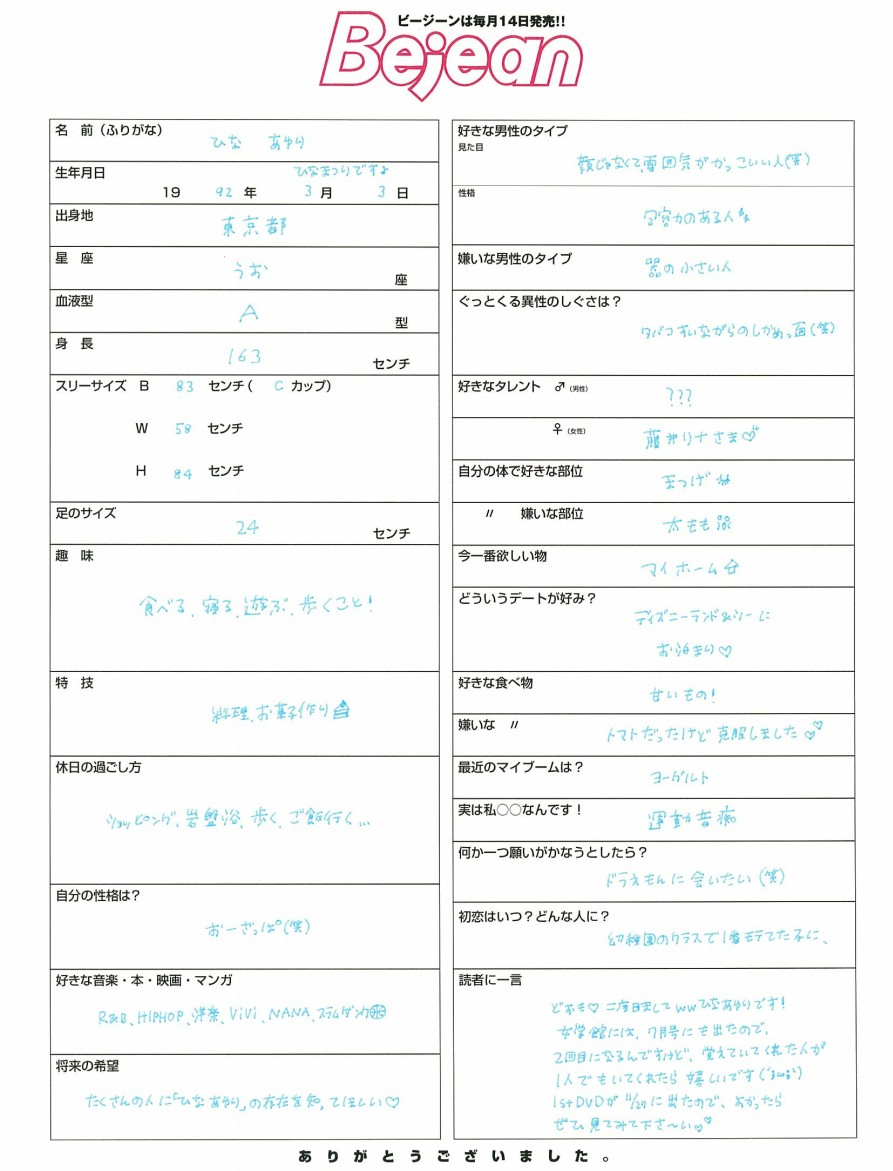 ビージーンは毎月14日発売!!
Bejean
名 前（ふりがな）
ひな あゆり
生年月日
ひなまつりですよ
19 92 年 3 月 3 日
出身地
東京都
星 座
うお 座
血液型
A 型
身 長
163 センチ
スリーサイズ B 83 センチ( C カップ)
W 58 センチ
H 84 センチ
足のサイズ
24 センチ
趣 味
食べる、寝る、遊ぶ、歩くこと!
特 技
料理、お菓子作り
休日の過ごし方
ショッピング、岩盤浴、歩く、ご飯行く...
自分の性格は？
おーざっぱ(笑)
好きな音楽・本・映画・マンガ
R&B、HIPHOP、洋楽、ViVi、NANA、スラムダンク
将来の希望
たくさんの人に「ひなあゆり」の存在を知ってほしい♡
好きな男性のタイプ
見た目
顔じゃなくて、雰囲気がかっこいい人(笑)
性格
包容力のある人
嫌いな男性のタイプ
器の小さい人
ぐっとくる異性のしぐさは？
タバコすいながらのしかめっ面(笑)
好きなタレント ♂（男性）
???
♀（女性）
藤井リナさま♡
自分の体で好きな部位
まつげ
〃 嫌いな部位
太もも
今一番欲しい物
マイホーム
どういうデートが好み？
ディズニーランド&シーに
お泊まり♡
好きな食べ物
甘いもの!
嫌いな 〃
トマトだったけど克服しました♡
最近のマイブームは？
ヨーグルト
実は私○○なんです！
運動音痴
何か一つ願いがかなうとしたら？
ドラえもんに会いたい(笑)
初恋はいつ？どんな人に？
幼稚園のクラスで1番モテてた子に、
読者に一言
どおも♡二度目まして wwひなあゆりです!
女学館には、7月号にも出たので、
2回目になるんですけど、覚えていてくれた人が
1人でもいてくれたら嬉しいです
1stDVDが 11/27に出たので、よかったら
ぜひ見てみて下さ〜い♡
ありがとうございました。